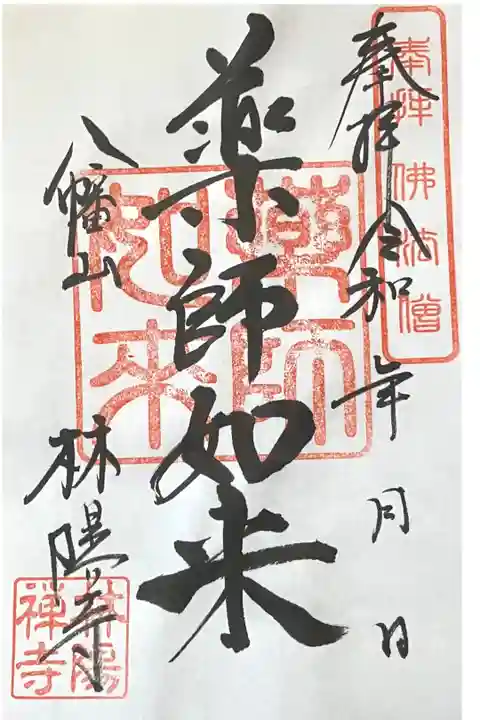 奉拝 令和 年 月 日
奉拝 佛法僧
薬師如来
薬師如来
八幡山 林陽寺
林陽禅寺